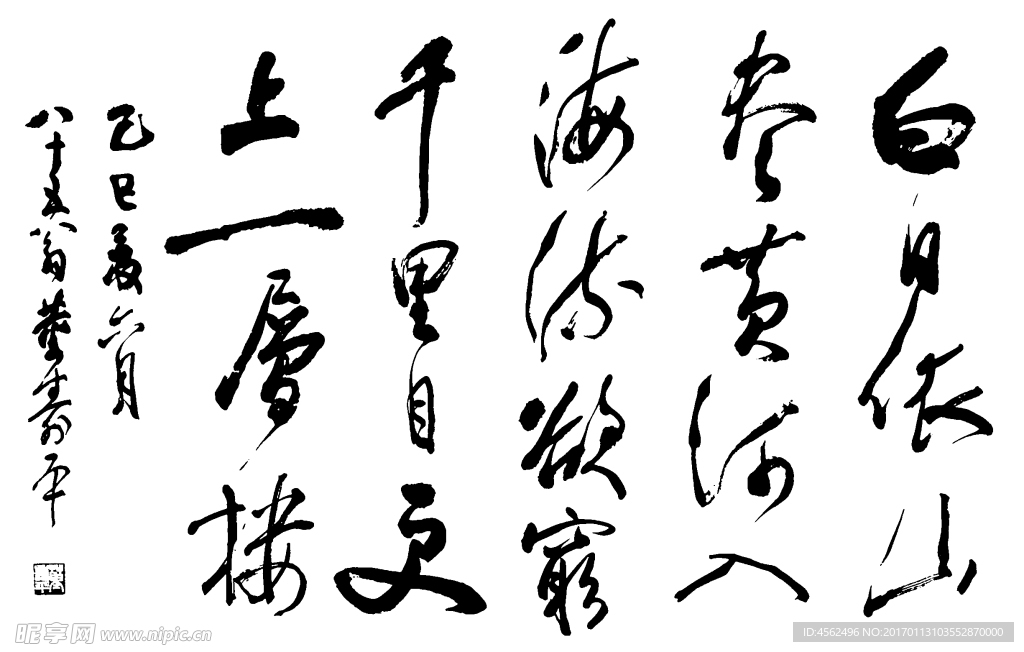 白日依山
尽黄河入
海流欲窮
千里目更
上一層楼
己巳歲六月
八十五翁董寿平
昵享网 www.nipic.cn
ID:4562496 NO:20170113103552870000